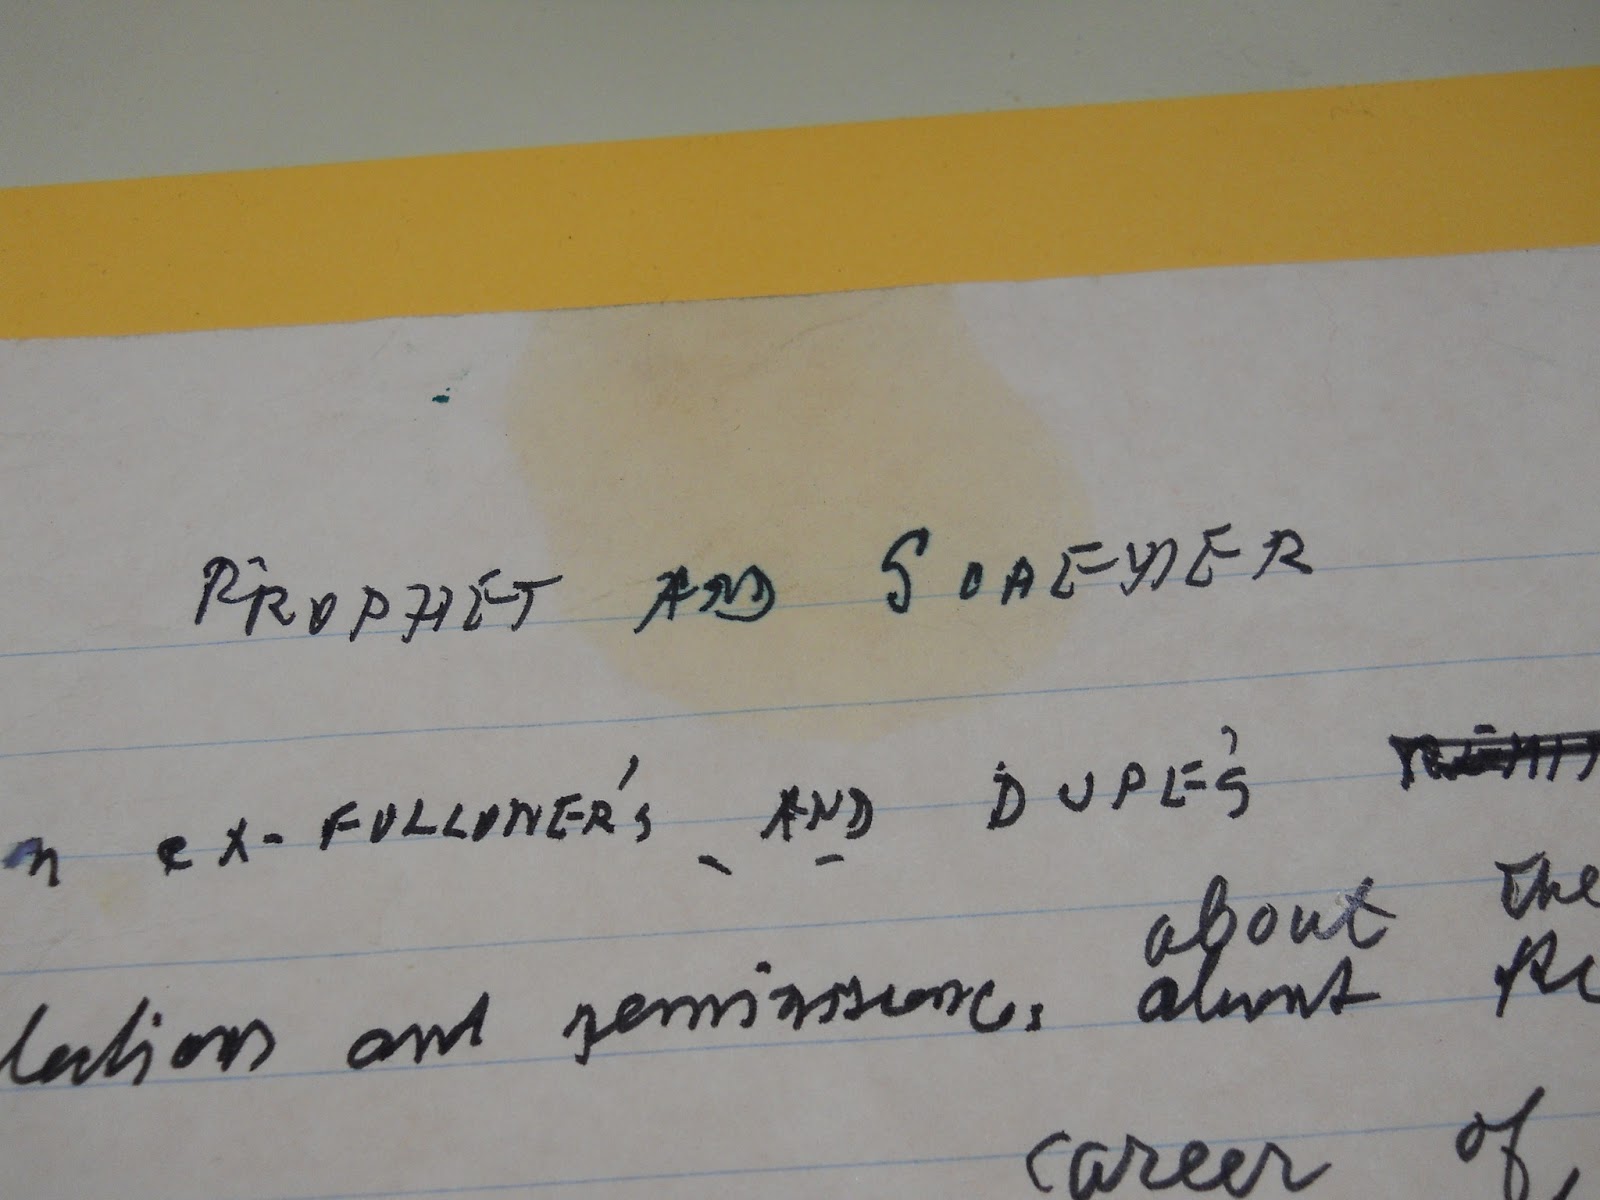 PROPHET AND SCHEMER
n ex-FOLLOWER'S AND DUPE'S
about the
lections and remissiences about the
career of